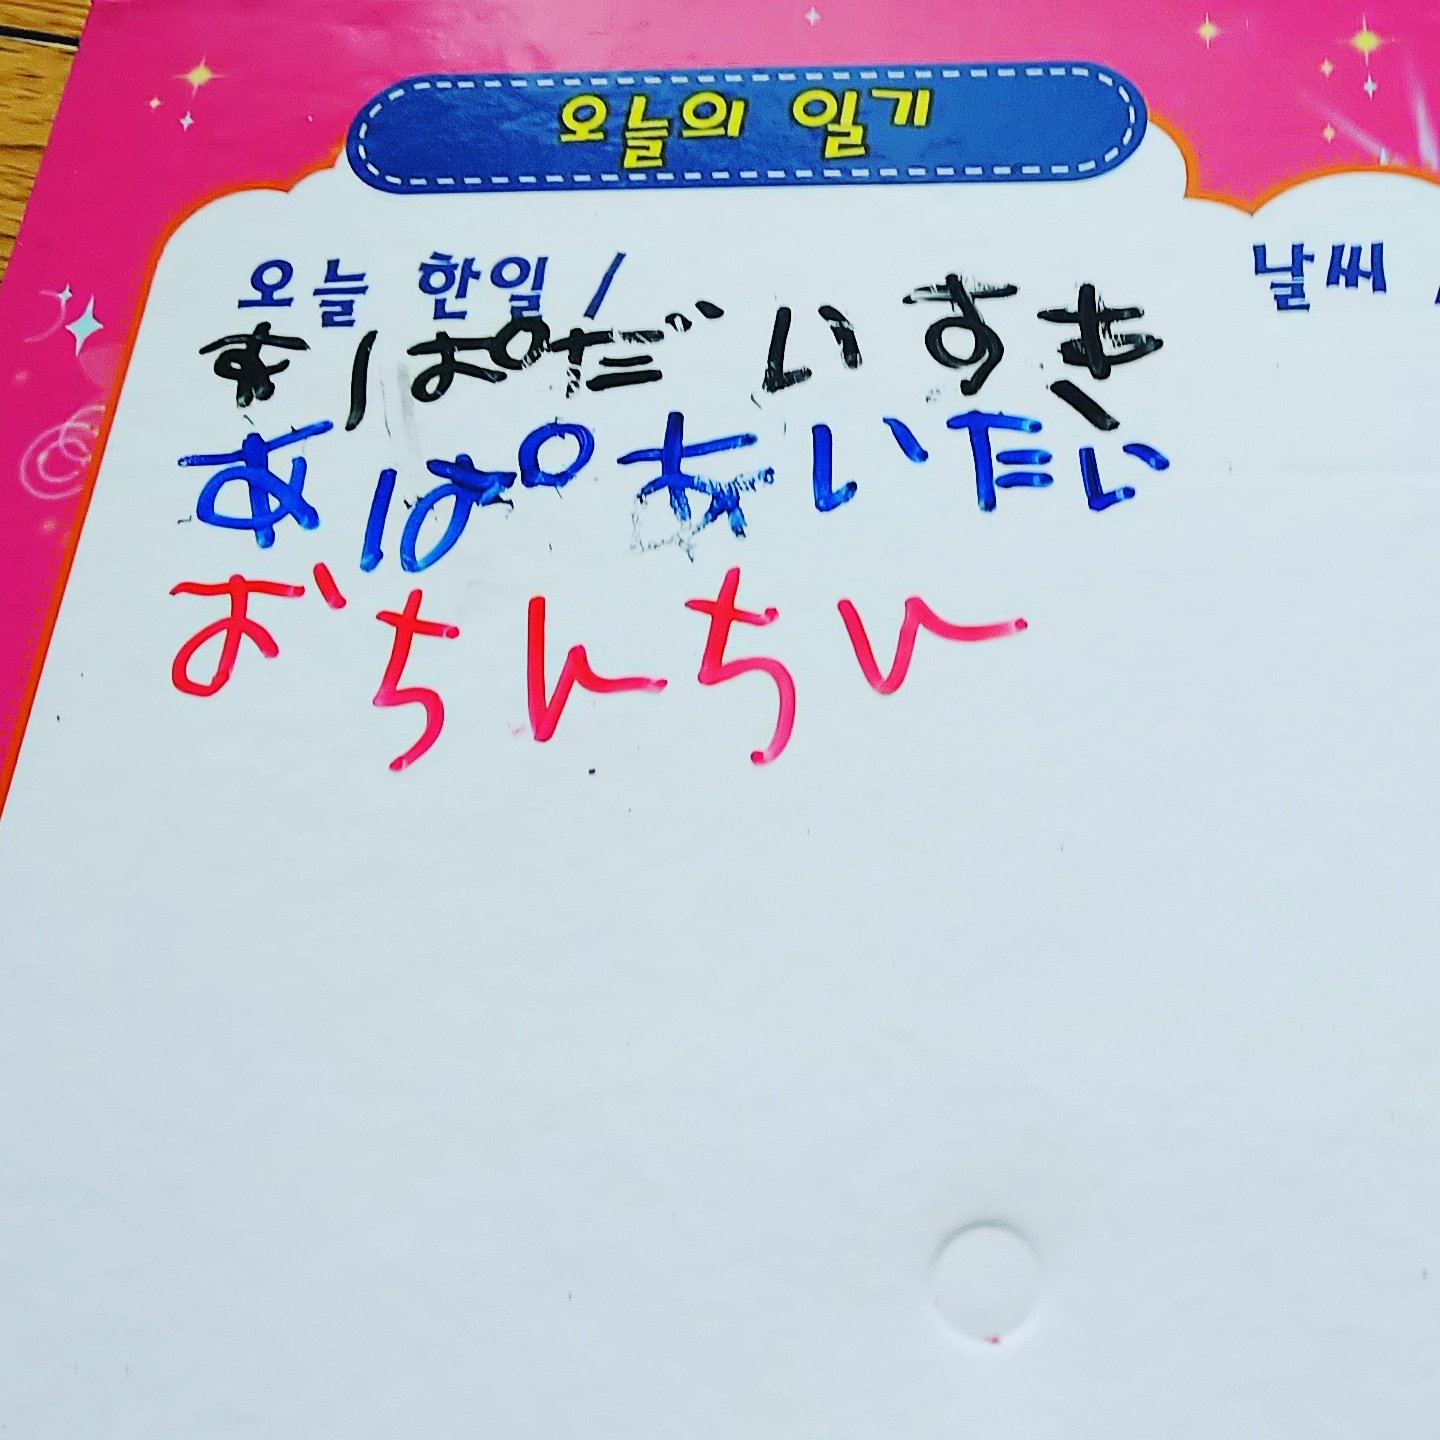 오늘의 일기
오늘 한일 /
날씨 /
あぱだいすき
あぱあいたい
おちんちん